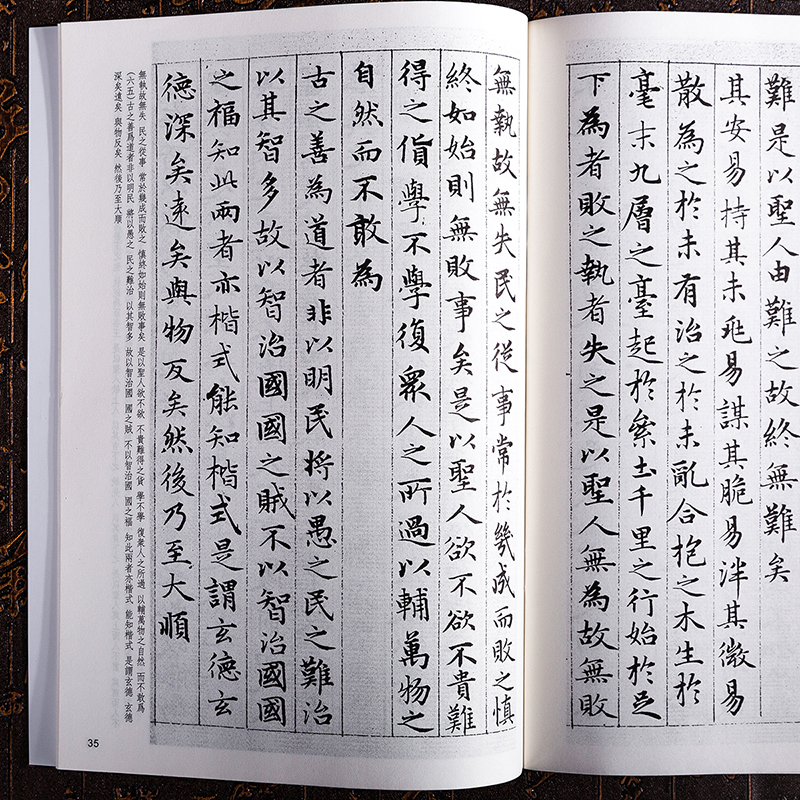 難是以聖人由難之故終無難矣
其安易持其未兆易謀其脆易泮其微易
散為之於未有治之於未亂合抱之木生於
毫末九層之臺起於絫土千里之行始於足
下為者敗之執者失之是以聖人無為故無敗
無執故無失民之從事常於幾成而敗之慎
終如始則無敗事矣是以聖人欲不欲不貴難
得之貨學不學復衆人之所過以輔萬物之
自然而不敢為
古之善為道者非以明民將以愚之民之難治
以其智多故以智治國國之賊不以智治國國
之福知此兩者亦楷式能知楷式是謂玄德玄
德深矣遠矣與物反矣然後乃至大順
無執故無失 民之從事 常於幾成而敗之 慎終如始則無敗事矣 是以聖人欲不欲 不貴難得之貨 學不學 復衆人之所過 以輔萬物之自然 而不敢爲
(六五)古之善爲道者非以明民 將以愚之 民之難治 以其智多 故以智治國 國之賊 不以智治國 國之福 知此兩者亦楷式 能知楷式 是謂玄德 玄德
深矣遠矣 與物反矣 然後乃至大順
35